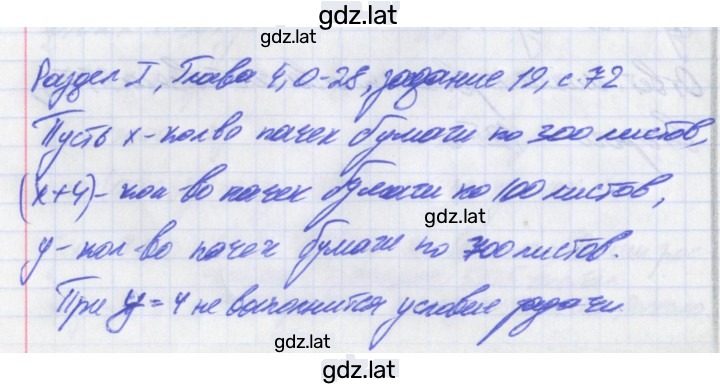 gdz.lat
Раздел I, Глава 4, О-28, задание 19, с 72
Пусть x - кол-во пачек бумаги по 300 листов,
(x+4) - кол-во пачек бумаги по 100 листов,
gdz.lat
y - кол-во пачек бумаги по 700 листов.
При y = 4 не выполнится условие задачи
gdz.lat
gdz.lat